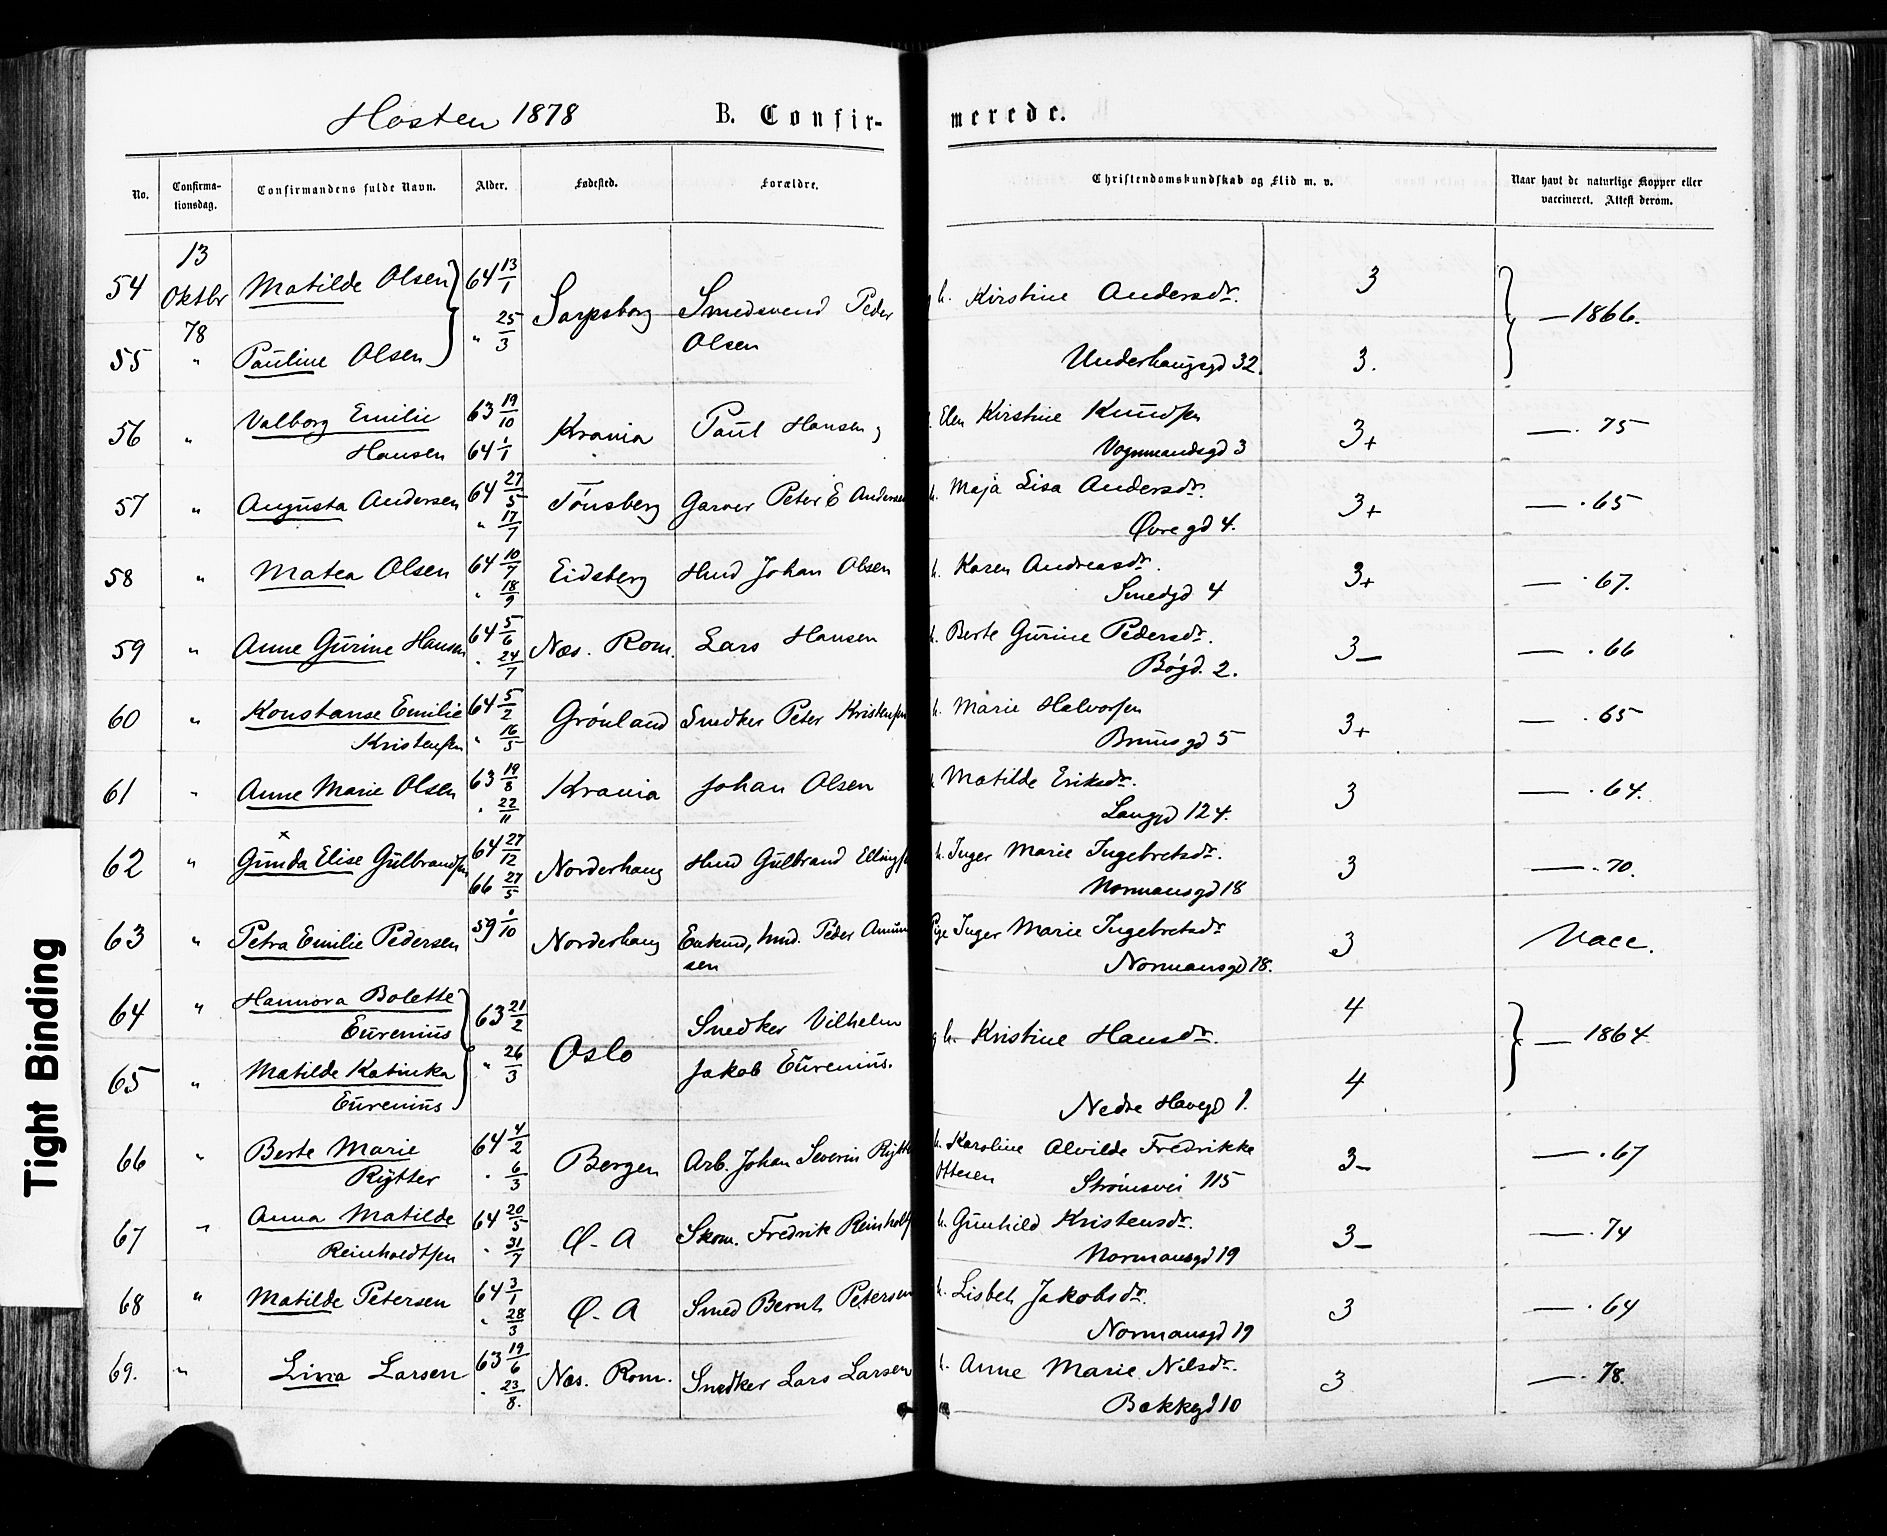 Høsten 1878
B. Confir-
merede.
No.
Confirma-
tionsdag.
Confirmandens fulde Navn.
Alder.
Fødested.
Forældre.
Christendomskundskab og Flid m. v.
Naar havt de naturlige Kopper eller
vaccineret. Attest derom.
54 13 Oktbr 78 Matilde Olsen 64 13/1 Sarpsborg Smedsvend Peder Olsen g h. Kirstine Andersdr. 3 — 1866.
55 " Pauline Olsen " 25/3 Underhaugsgd 32. 3.
56 " Valborg Emilie 63 19/10 Krania Paul Hansen g Elen Kirstine Knudsen 3+ — 75
Hansen 64 1/1 Vognmandsgd 3
57 " Augusta Andersen 64 27/5 Tønsberg Garver Peter E Andersen h. Maja Lisa Andersdr. 3+ — . 65
" 17/7 Øvre gd 4.
58 " Matea Olsen 64 10/7 Eidsberg Hmd Johan Olsen h. Karen Andreasdr. 3+ — . 67.
" 18/9 Smedgd 4
59 " Anne Gurine Hansen 64 5/6 Næs. Rom. Lars Hansen h. Berte Gurine Pedersdr. 3— — . 66
" 24/7 Bøgd. 2.
60 " Konstanse Emilie 64 5/2 Grønland Snedker Peter Kristensen h. Marie Halvorsen 3+ — . 65
Kristensen " 16/5 Brinsgd 5
61 " Anne Marie Olsen 63 19/8 Krania Johan Olsen Matilde Eriksdr. 3 — . 64.
" 22/11 Langgd 124.
62 " Gunda Elise Gulbrandsen 64 27/12 Norderhaug Hmd Gulbrand Ellingsen h. Inger Marie Ingebretsdr. 3 — . 70.
66 27/5 Normansgd 18
63 " Petra Emilie Pedersen 59 1/10 Norderhaug Enkmd, hmd. Peder Amundsen Pge Inger Marie Ingebretsdr 3 Vacc.
Normansgd 18.
64 " Hannora Bolette 63 21/2 Oslo Snedker Vilhelm g h. Kristine Hansdr. 4 — 1864
Eurenius
65 " Matilde Katinka " 26/3 Jakob Eurenius. 4
Eurenius Nedre Havegd 1.
66 " Berte Marie 64 4/2 Bergen Arb. Johan Severin Rytter h. Karoline Alvilde Fredrikke 3— — . 67
Rytter " 6/3 Ottesen Strømsvei 115
67 " Anna Matilde 64 20/5 Ø. A Skom. Fredrik Reinholdtsen h. Gunhild Kristensdr. 3— — . 74
Reinholdtsen " 31/7 Normansgd 19
68 " Matilde Petersen 64 3/1 Ø. A Smed Bernt Petersen h. Lisbet Jakobsdr. 3 — . 64
" 28/3 Normansgd 19
69. " Lina Larsen 63 19/6 Næs. Rom. Snedker Lars Larsen h. Anne Marie Nilsdr. 3 — . 78.
" 23/8. Bakkegd 10
Tight Binding